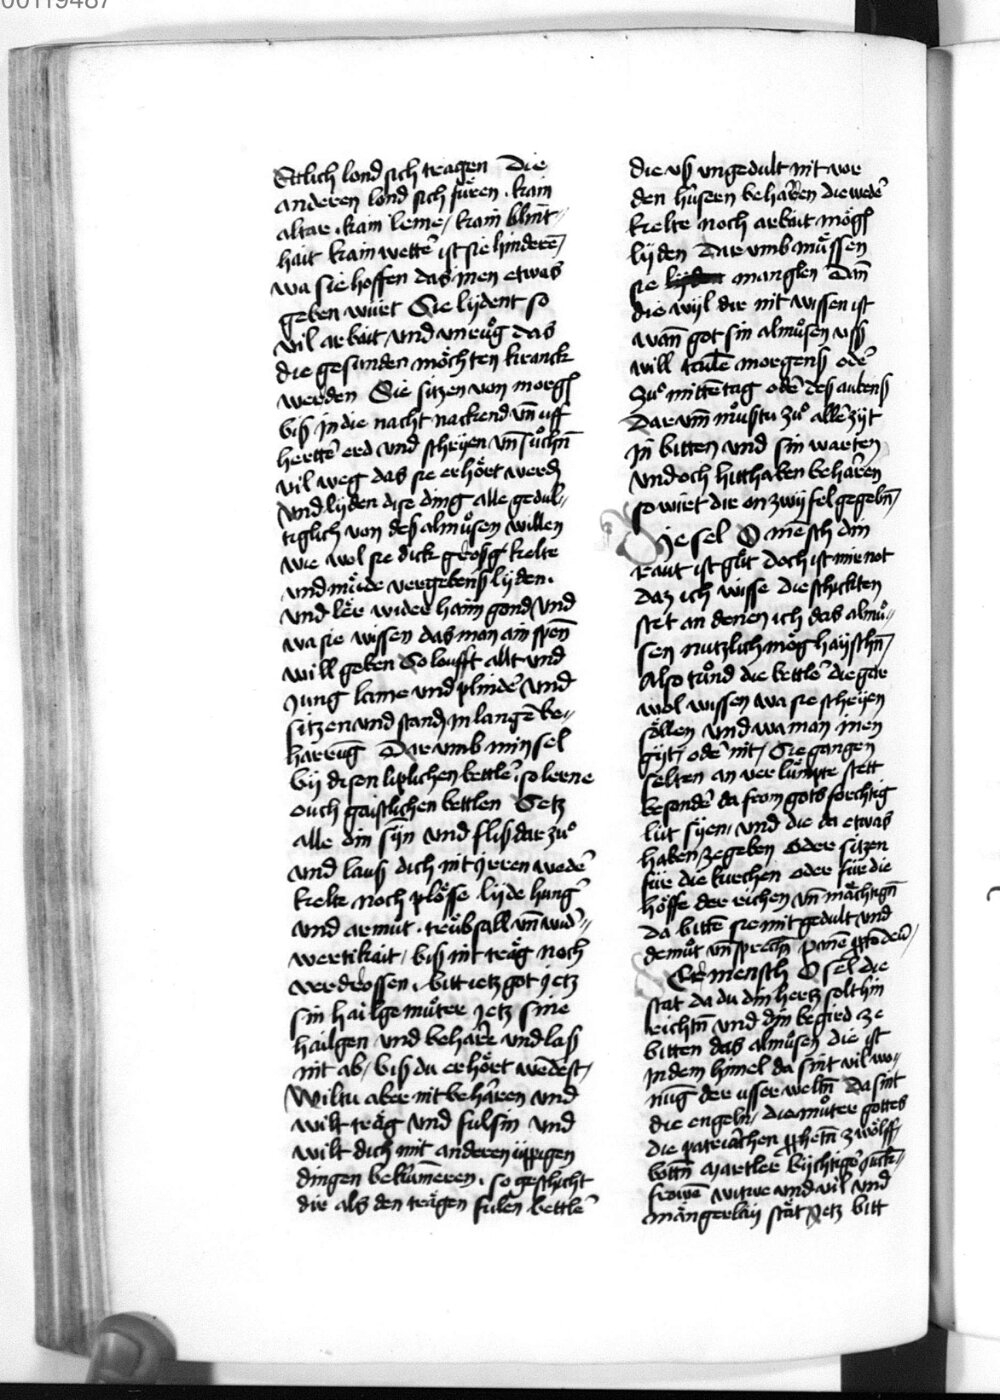 00119487
Ettlich lond sich tragen Die
anderen lond sich fuͤren · kain
altar · kain leme / kain blint-
hait kain wetteͤ ist sie hinderē /
wa sie hoffen das inen etwas
geben wirt Sie lijdent so
vil arbait / und vnruͦg das
die gesunden moͤchten kranck
werden Sie sitzen von morgē
biß in die nacht nackend vn̄ uff
herttē erd und schrijen vn̄ suͦchn̄
vil weg das sie erhoͤrt werdē
vnd lijden dise ding alle gedul-
tiglich von deß almuͦsen willen
wie wol sie dick groͤssz kelte
und muͤde vergebenß lijden ·
vnd ler wider haim gond vnd
wa sie wissen das man ain spen̄
will geben So loufft allt und
jung lame und plinde vnd
sitzen und stand in langē be-
harrūg Dar vmb min sel
bij disen liplichen bettleͤ / so lerne
ouch gaistlichen bettlen Setz
alle din sijn vnd flißdar zuͦ
und lauß dich nit jrren wedeͤ
kelte noch ploͤsse lijde hungeͤ
und armut · truͤbsall vn̄ wid-
wertikait / biß nit traͤg noch
verdrossen · bitt ietz got jetz
sin hailge muͦter jetz sine
hailgen und beharre und laß
nit ab / biß du erhoͤrt wedest /
Wiltu aber nit beharren und
wilt traͤg und fulsin und
wilt dich mit anderen üppigen
dingen bekūmeren · so geschicht
dir als den traͤgen fulen bettleͤ
die uß ungedult nit vor
den hüsern beharren die wedeͤ
kelte noch arbait moͤgē
lijden Dar vmb muͤssen
sie manglen Dan̄
die wijl dir nit wissen ist
wan̄ got sin almuͦsen uß
will taile morgenß odeͤ
zuͦ mittētag odeͤ deß aubenß
Darum̄ muͦstu zuͦ alle zijt
in bitten vnd sin warten
und och hitthaben beharren
so wirt dir on zwijfel gegebn̄ /
Die sel O mēsch din
raut ist guͦt doch ist mir not
daz ich wisse die schickten
stet an denen ich das almuͦ-
sen nutzlich moͤg haijschn̄ /
Also tuͦnd die bettleͤ die gar
wol wissen wa sie schrijen
soͤllen und wa man inen
gijt / odeͤ nit / Sie gangen
selten an ver lümpte stett
besondeͤ da from gots forchtig
lüt sijen / und die da etwas
haben zegeben Oder sitzen
für die kirchen oder für die
hoͤffe der richen vn̄ maͤchtign̄
da bittē sie mit gedult und
demuͦt vn̄ sprechn̄
Der mensch O sel die
stat da du din hertz solt hin
richtn̄ und din begird ze
bitten das almuͦsen die ist
in dem himel da sint vil wo-
nūg der usserweltn̄ Da sint
die engeln / die muͦter gottes
die patriachen zwoͤlff
bottn̄ Martler bijchtiger
frowē witwe und vil und
mangerlaij staͤt Jetz bitt